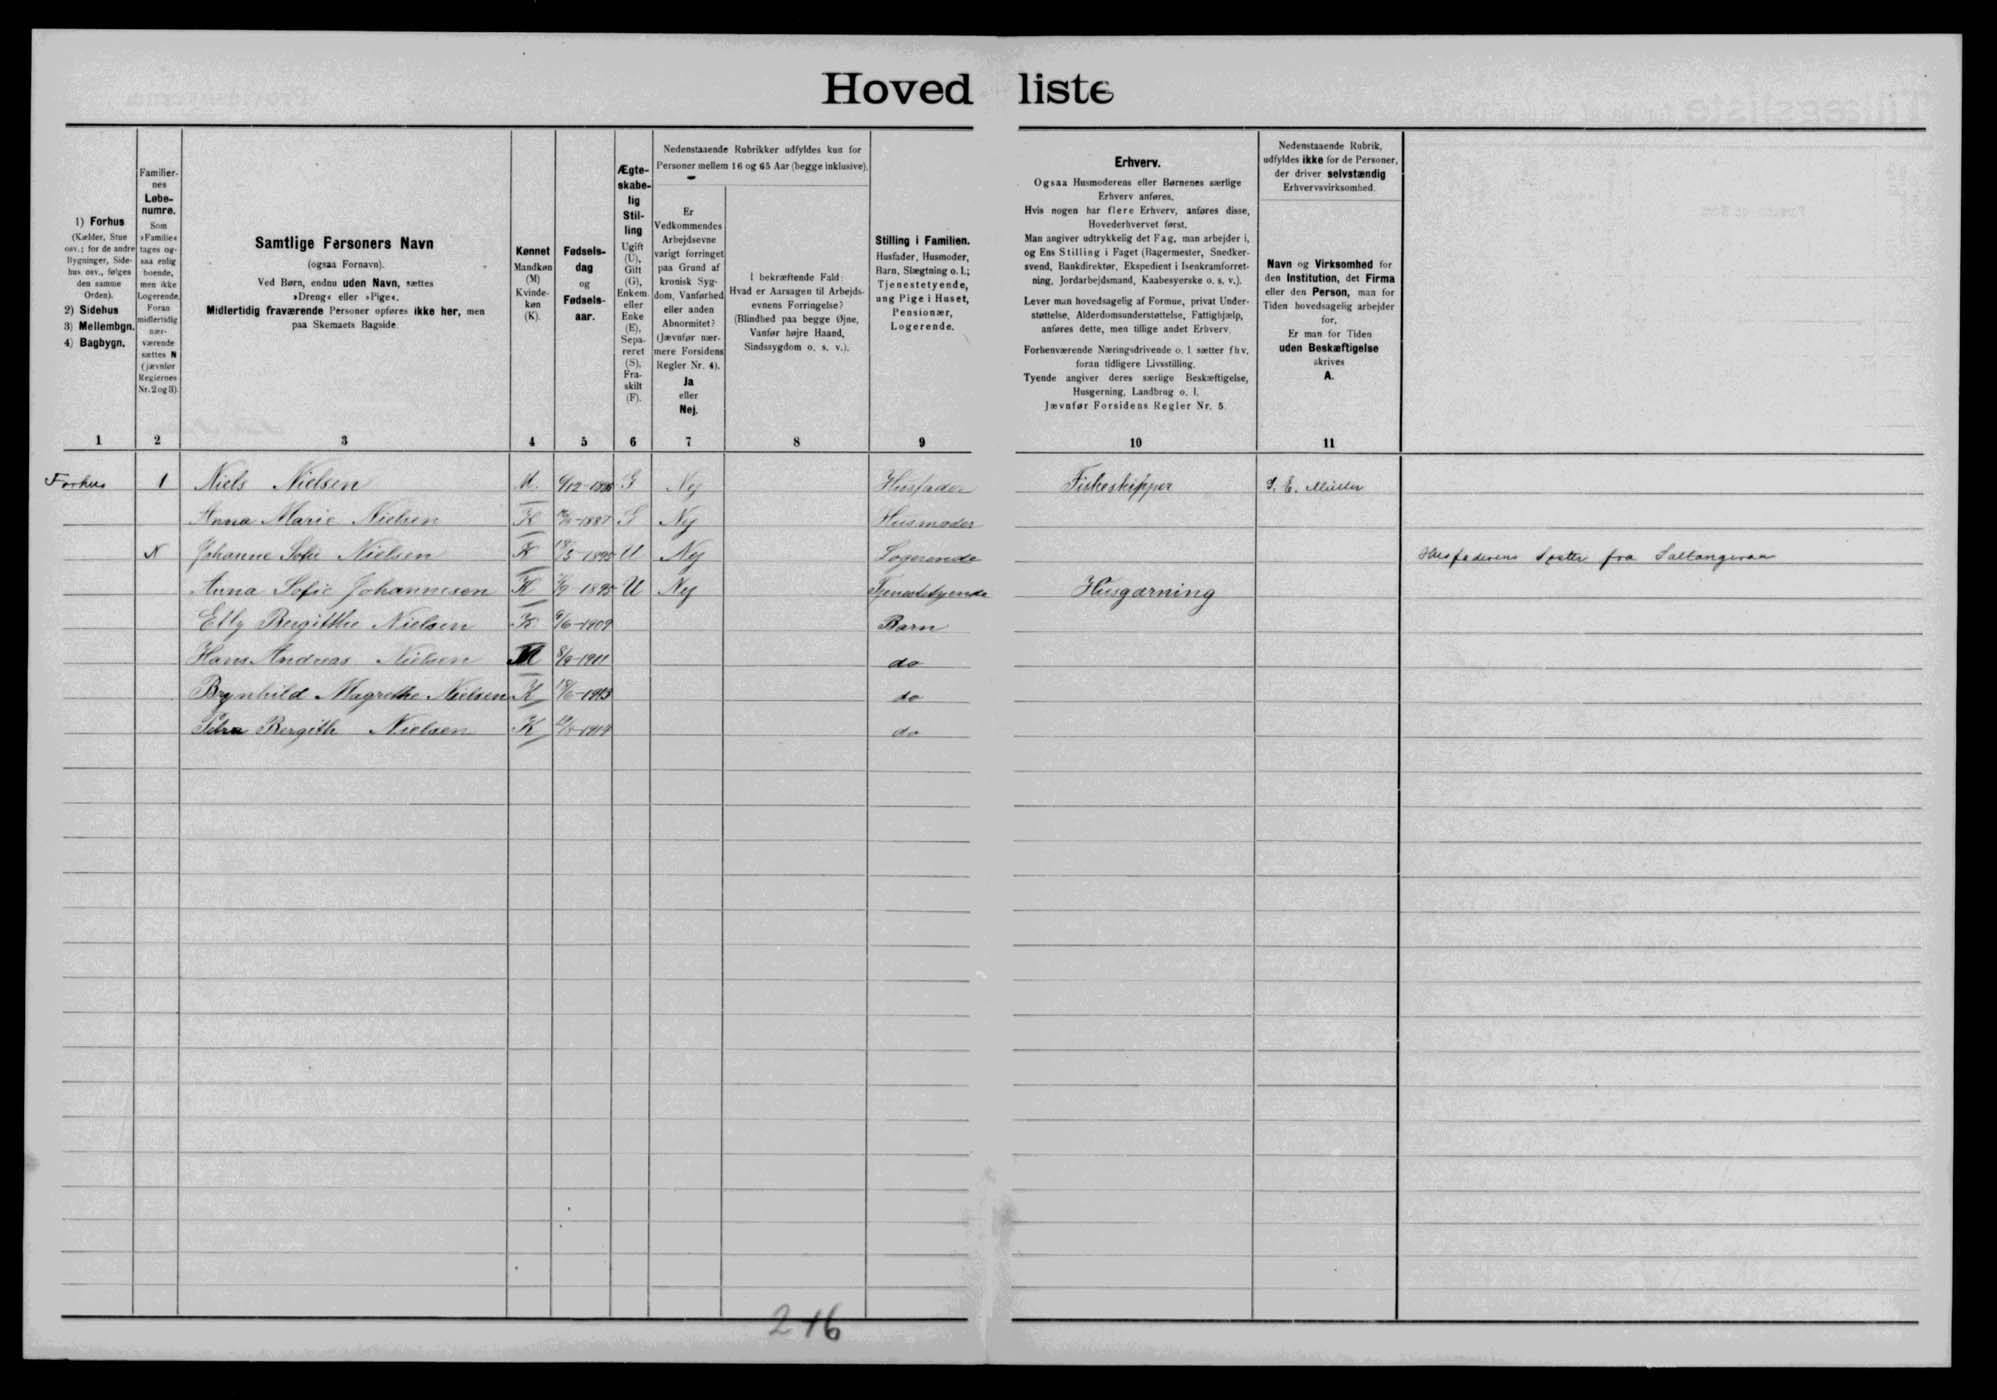 Hovedliste
1) Forhus
(Kælder, Stue
osv.; for de andre
Bygninger, Side-
hus osv., følges
den samme
Orden).
2) Sidehus
3) Mellembgn.
4) Bagbygn.
Familier-
nes
Løbe-
numre.
Som
»Familie«
tages og-
saa enlig
boende,
men ikke
Logerende.
Foran
midlertidig
nær-
værende
sættes N
(jævnfør
Reglernes
Nr. 2 og 3).
Samtlige Personers Navn
(ogsaa Fornavn).
Ved Børn, endnu uden Navn, sættes
»Dreng« eller »Pige«.
Midlertidig fraværende Personer opføres ikke her, men
paa Skemaets Bagside.
Kønnet
Mandkøn
(M)
Kvinde-
køn
(K).
Fødsels-
dag
og
Fødsels-
aar.
Ægte-
skabe-
lig
Stil-
ling
Ugift
(U),
Gift
(G),
Enkem.
eller
Enke
(E),
Sepa-
reret
(S),
Fra-
skilt
(F).
Nedenstaaende Rubrikker udfyldes kun for
Personer mellem 16 og 65 Aar (begge inklusive).
Er
Vedkommendes
Arbejdsevne
varigt forringet
paa Grund af
kronisk Syg-
dom, Vanførhed
eller anden
Abnormitet?
(Jævnfør nær-
mere Forsidens
Regler Nr. 4).
Ja
eller
Nej.
I bekræftende Fald:
Hvad er Aarsagen til Arbejds-
evnens Forringelse?
(Blindhed paa begge Øjne,
Vanfør højre Haand,
Sindssygdom o. s. v.).
Stilling i Familien.
Husfader, Husmoder,
Barn, Slægtning o. l.;
Tjenestetyende,
ung Pige i Huset,
Pensionær,
Logerende.
Erhverv.
Ogsaa Husmoderens eller Børnenes særlige
Erhverv anføres.
Hvis nogen har flere Erhverv, anføres disse,
Hovederhvervet først.
Man angiver udtrykkelig det Fag, man arbejder i,
og Ens Stilling i Faget (Bagermester, Snedker-
svend, Bankdirektør, Ekspedient i Isenkramforret-
ning, Jordarbejdsmand, Kaabesyerske o. s. v.).
Lever man hovedsagelig af Formue, privat Under-
støttelse, Alderdomsunderstøttelse, Fattighjælp,
anføres dette, men tillige andet Erhverv.
Forhenværende Næringsdrivende o. l. sætter fhv.
foran tidligere Livsstilling.
Tyende angiver deres særlige Beskæftigelse,
Husgerning, Landbrug o. l.
Jævnfør Forsidens Regler Nr. 5.
Nedenstaaende Rubrik,
udfyldes ikke for de Personer,
der driver selvstændig
Erhvervsvirksomhed.
Navn og Virksomhed for
den Institution, det Firma
eller den Person, man for
Tiden hovedsagelig arbejder
for.
Er man for Tiden
uden Beskæftigelse
skrives
A.
1 2 3 4 5 6 7 8 9 10 11
Forhus 1 Niels Nielsen M. G Nej Husfader Fiskeskipper Müller
Anna Marie Nielsen K G Nej Husmoder
N Johanne Sofie Nielsen K U Nej Logerende Husfaderens Søster fra Saltangeraa
Anna Sofie Johannesen K U Nej Tjenestetyende Husgærning
Elly Bergitthe Nielsen K 9/6-1909 Barn
Hans Andreas Nielsen M 8/9-1911 do
Brynhild Magrethe Nielsen K 1913 do
Petra Bergith Nielsen K 1914 do
216